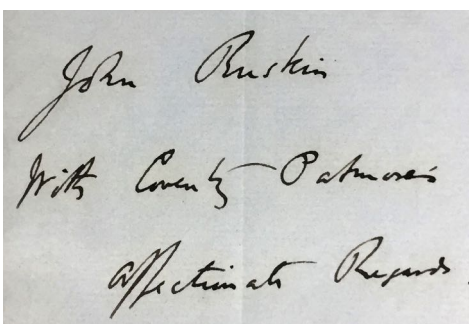 John Ruskin
With Coventy Patmore's
affectionate Regards.